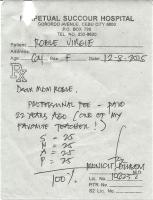 PERPETUAL SUCCOUR HOSPITAL
GORORDO AVENUE, CEBU CITY 6000
P.O. BOX 730
TEL. NO.
Patient ROBLE, VIRGIE
Address
Age 64 Sex F Date 12-8-2025
Rx
DEAR MOM ROBLE,
PROFESSIONAL FEE - PAID
22 YEARS AGO (ONE OF MY
FAVORITE TEACHER!)
S = 25
N = 25
A = 25
P = 25
100%
M.D.
Lic No.
PTR No.
S2 Lic. No.